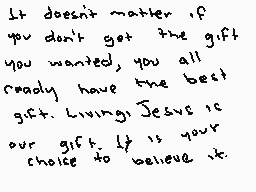 It doesn't matter if
you don't get the gift
you wanted, you all
ready have the best
gift. Living, Jesus is
our gift. It is your
choice to believe it.